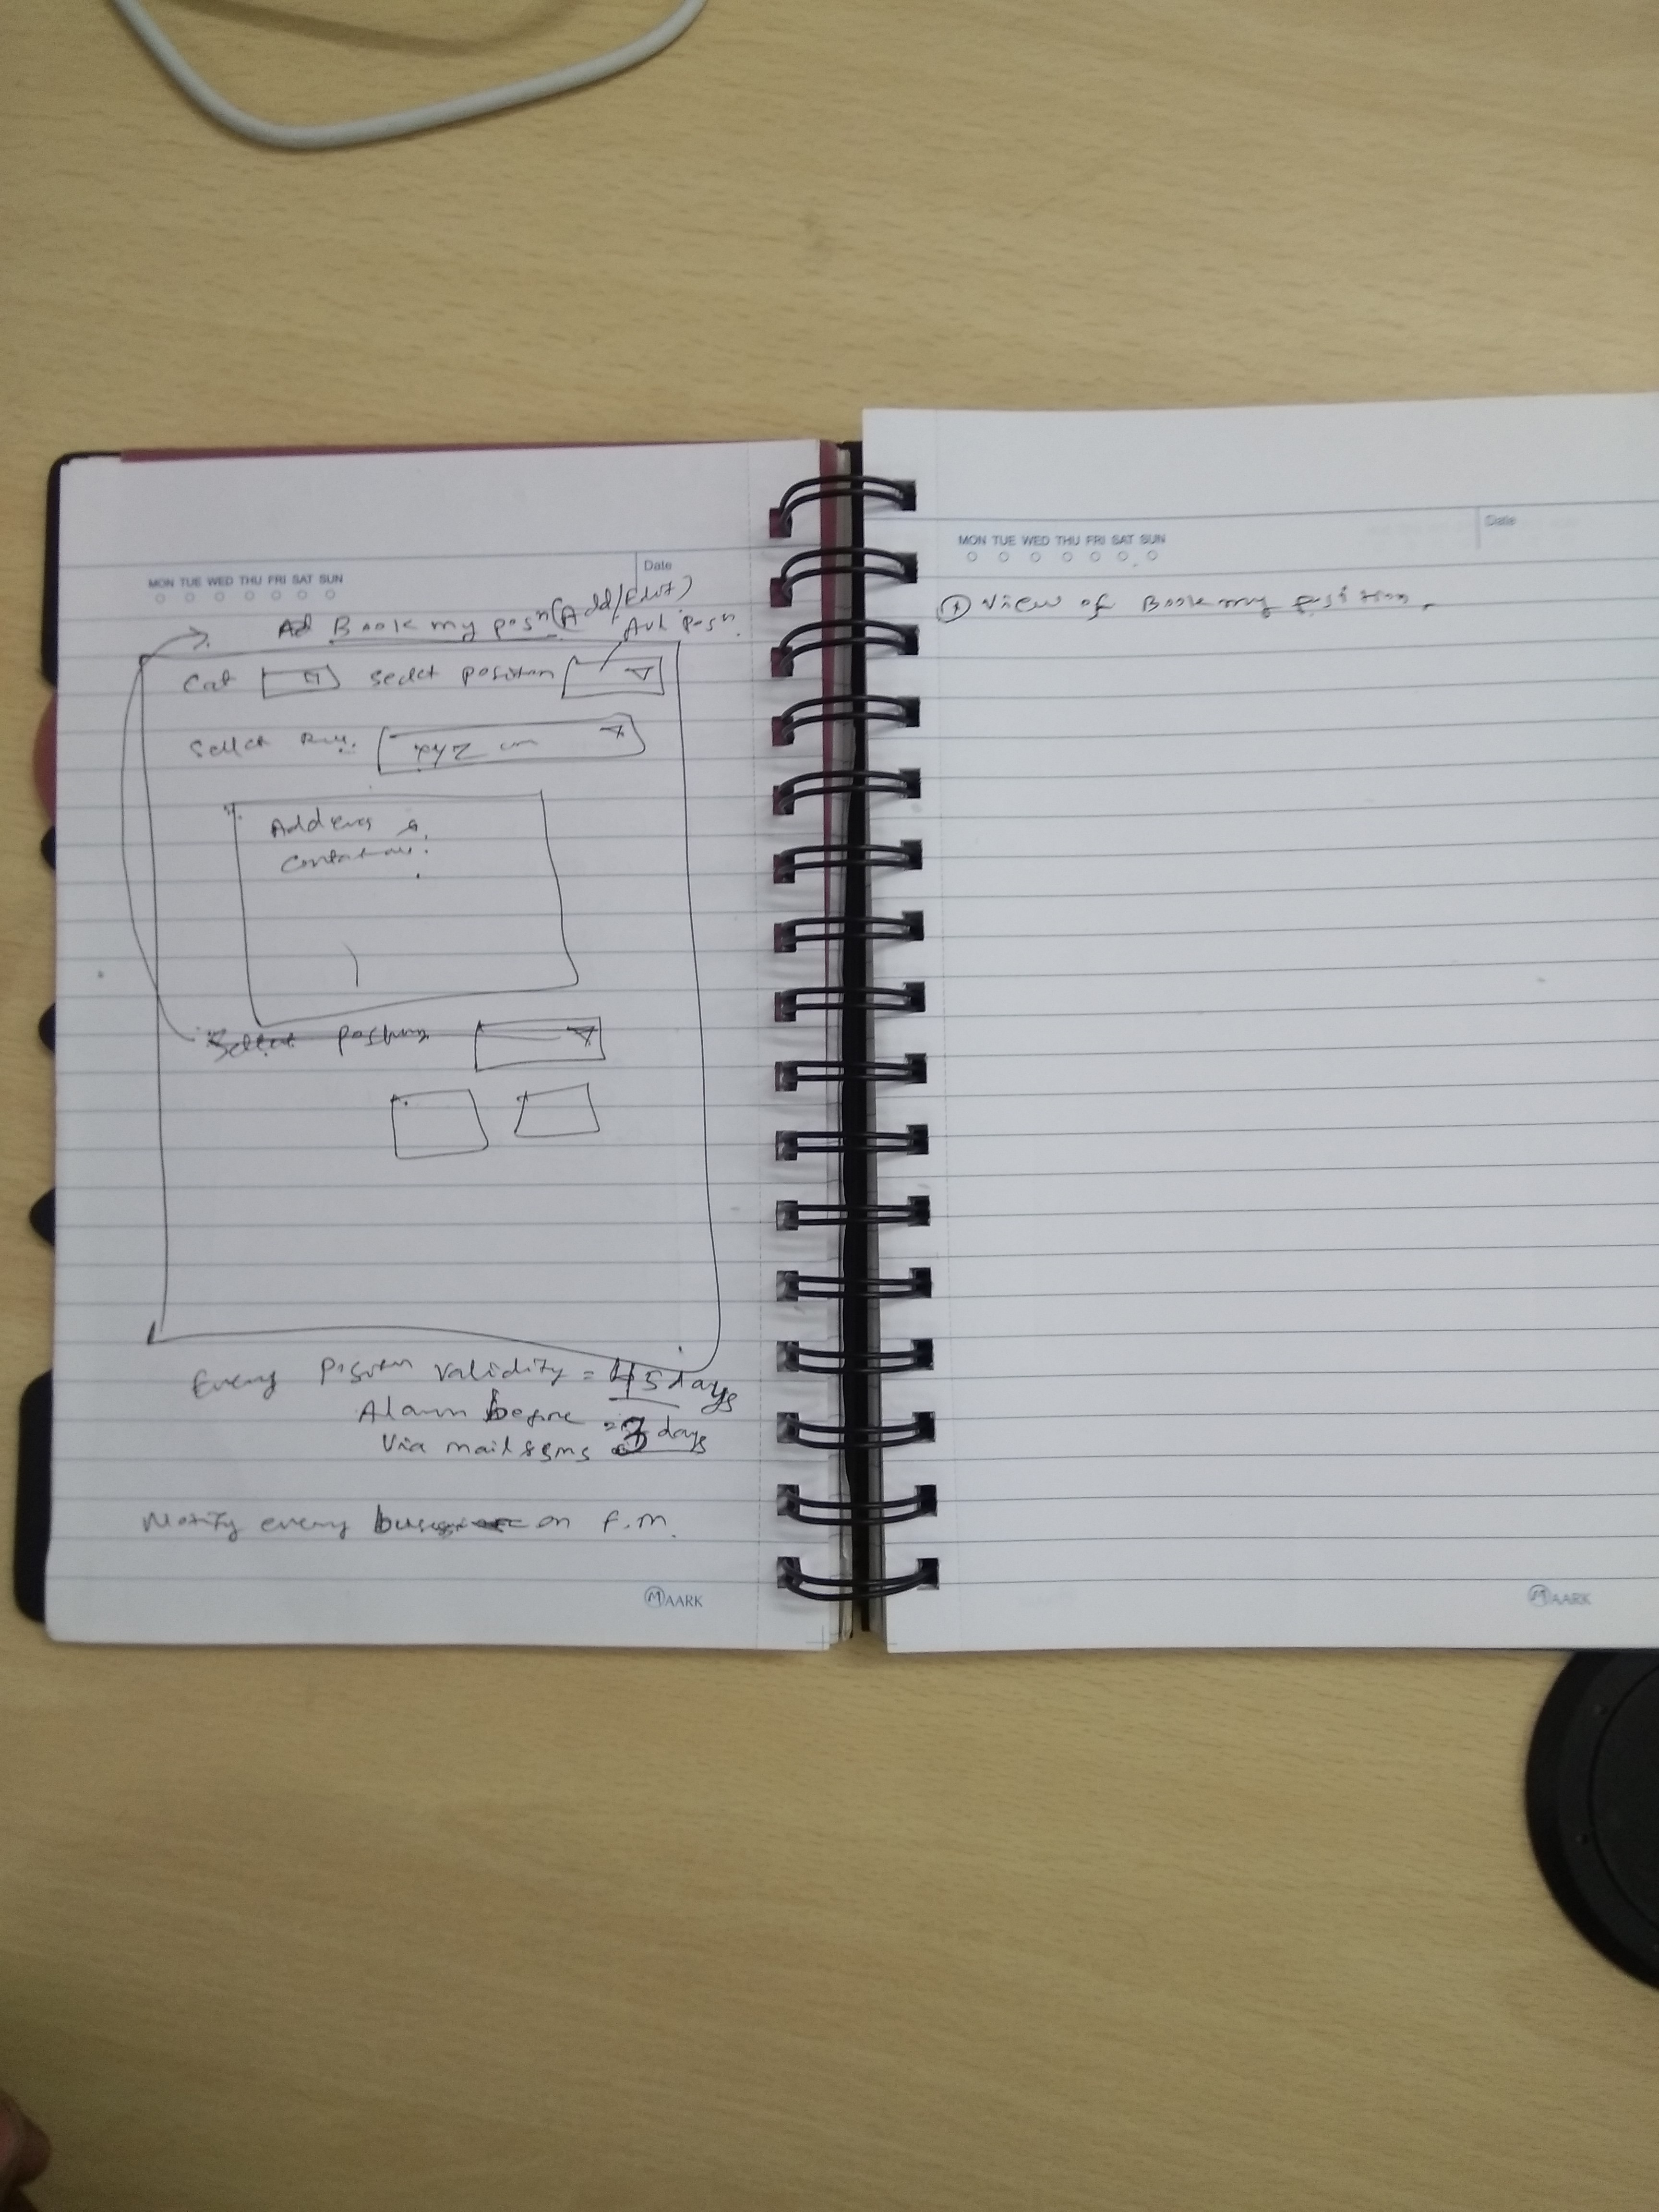 MON TUE WED THU FRI SAT SUN
Date
Ad Book my posn (Add/Edit)
Avl Posn.
Cat select position
Select Bus. xyz
Address &
Select position
Every Position validity = 45 days
Alarm before = 3 days
Via mail & sms
Notify every on F.M.
MAARK
MON TUE WED THU FRI SAT SUN
Date
View of Book my position.
MAARK